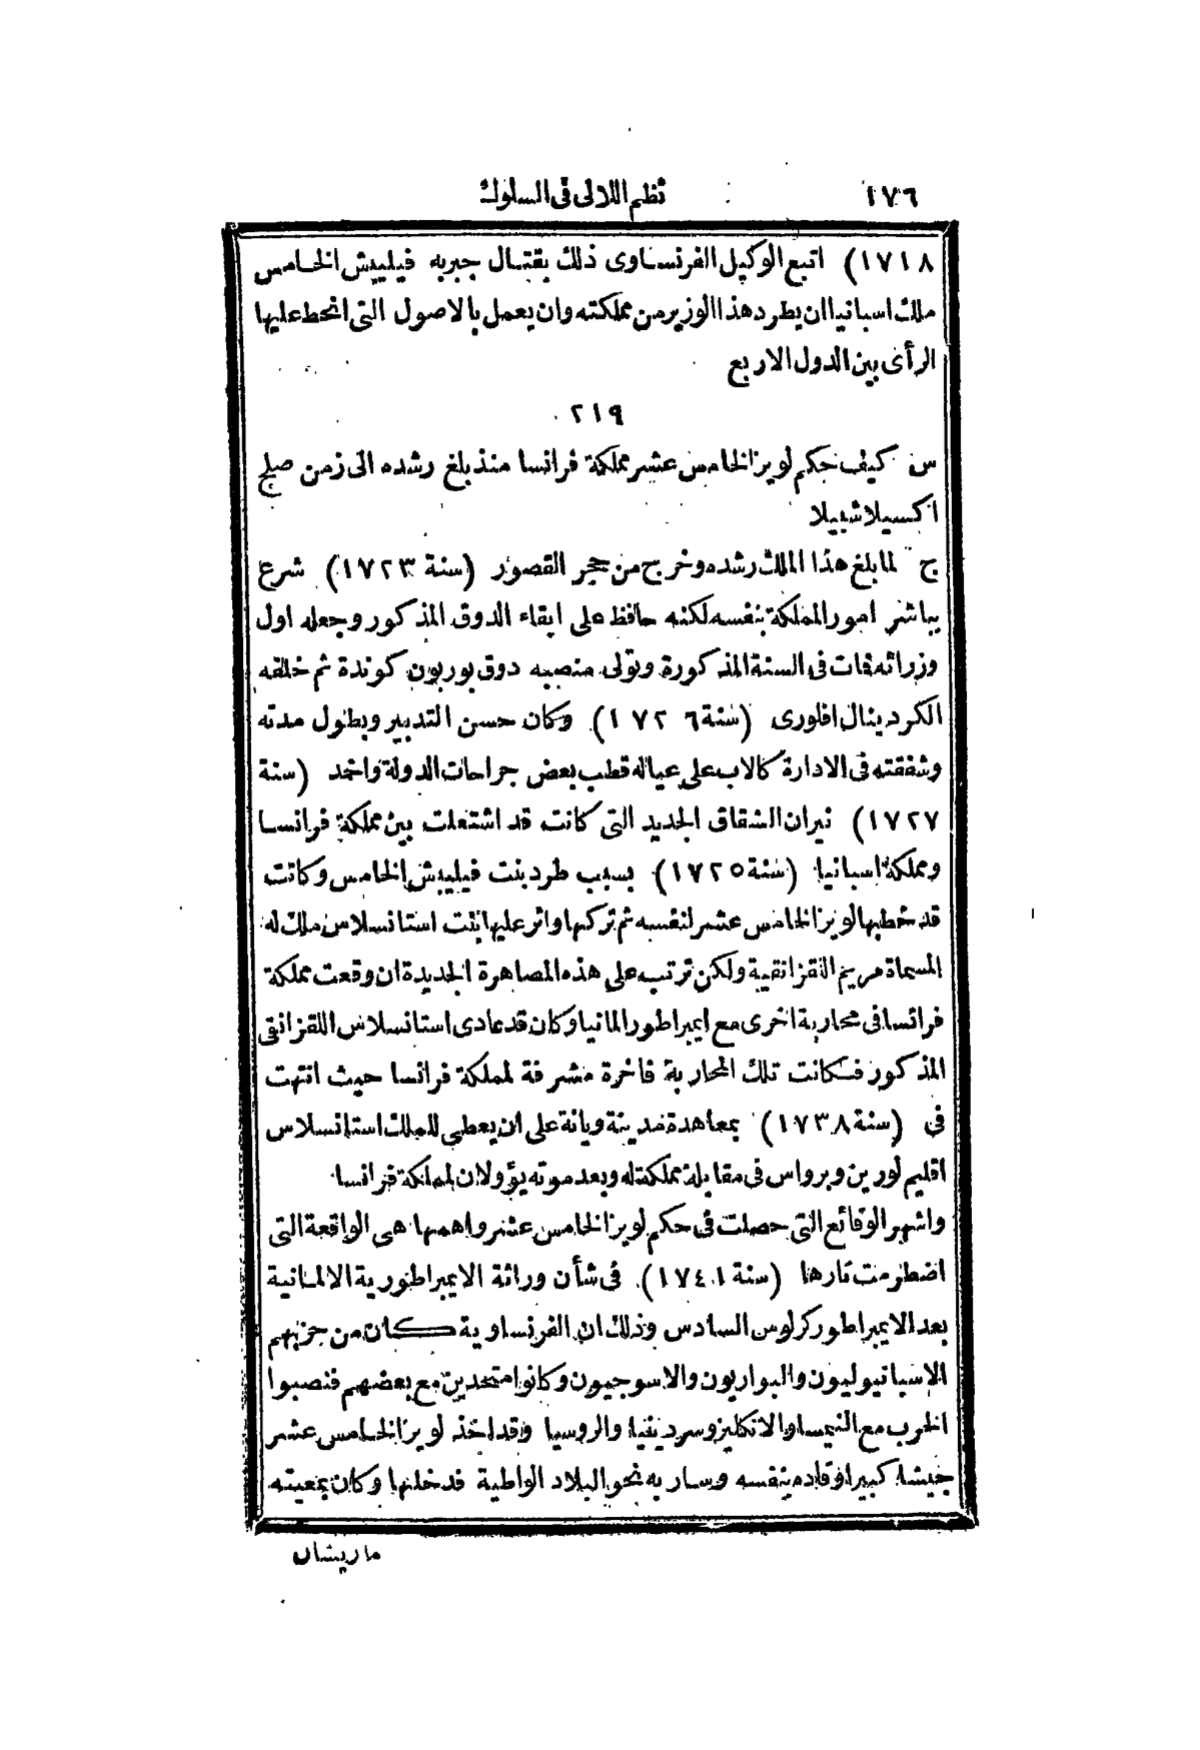 ١٧٦ نظم اللالى فى السلوك
١٧١٨) اتبع الوكيل الفرنساوى ذلك بقتال جبر به فيليبش الخامس
ملك اسبانيا ان يطرد هذا الوزير من مملكته وان يعمل بالاصول التى انحط عليها
الرأى بين الدول الاربع
٢١٩
س كيف حكم لويز الخامس عشر مملكة فرانسا منذ بلغ رشده الى زمن صلح
اكسيلاشبيلا
ج لما بلغ هذا الملك رشده وخرج من حجر القصور (سنة ١٧٢٣) شرع
يباشر امور المملكة بنفسه لكنه حافظ على ابقاء الدوق المذكور وجعله اول
وزرائه فمات فى السنة المذكورة وتولى منصبه دوق بوربون كوندة ثم خلفه
الكردينال افلورى (سنة ١٧٢٦) وكان حسن التدبير وبطول مدته
وشفقته فى الادارة كالاب على عياله قطب بعض جراحات الدولة واخمد (سنة
١٧٢٧) نيران الشقاق الجديد التى كانت قد اشتعلت بين مملكة فرانسا
ومملكة اسبانيا (سنة ١٧٢٥) بسبب طرد بنت فيليبش الخامس وكانت
قد خطبها لويز الخامس عشر لنفسه ثم تركها واثر عليها بنت استانسلاس ملك له
المسماة مريم القزانقية ولكن ترتب على هذه المصاهرة الجديدة ان وقعت مملكة
فرانسا فى محاربة اخرى مع ايمبراطور المانيا وكان قد عادى استانسلاس اللقزانقى
المذكور فكانت تلك المحاربة فاخرة مشرفة لمملكة فرانسا حيث انتهت
فى (سنة ١٧٣٨) بمعاهدة مدينة ويانة على ان يعطى للملك استانسلاس
اقليم لورين وبرواس فى مقابلة مملكة له وبعد موته يؤولان لمملكة فرانسا
واشهر الوقائع التى حصلت فى حكم لويز الخامس عشر واهمها هى الواقعة التى
اضطرمت نارها (سنة ١٧٤١) فى شأن وراثة الايمبراطورية الالمانية
بعد الايمبراطور كرلوس السادس وذلك ان الفرنساوية كان من حزبهم
الاسبانيوليون والبواريون والاسوجيون وكانوا متحدين مع بعضهم فنصبوا
الحرب مع النيمسا والانكليز وسردينيا والروسيا وقد اخذ لويز الخامس عشر
جيشا كبيرا وقاده بنفسه وسار به نحو البلاد الواطية فدخلها وكان بمعيته
ماريشال